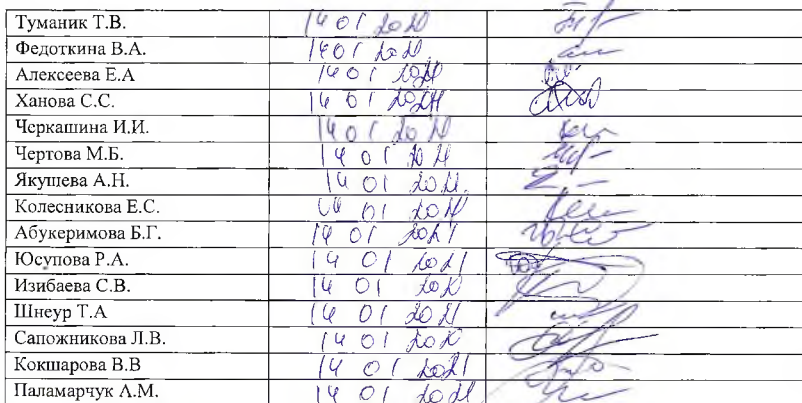 Туманик Т.В. 14 01 2021
Федоткина В.А. 14 01 2021
Алексеева Е.А 14 01 2021
Ханова С.С. 14 01 2021
Черкашина И.И. 14 01 2021
Чертова М.Б. 14 01 2021
Якушева А.Н. 14 01 2021.
Колесникова Е.С. 14 01 2021
Абукеримова Б.Г. 14 01 2021
Юсупова Р.А. 14 01 2021
Изибаева С.В. 14 01 2021
Шнеур Т.А 14 01 2021
Сапожникова Л.В. 14 01 2021
Кокшарова В.В 14 01 2021
Паламарчук А.М. 14 01 2021